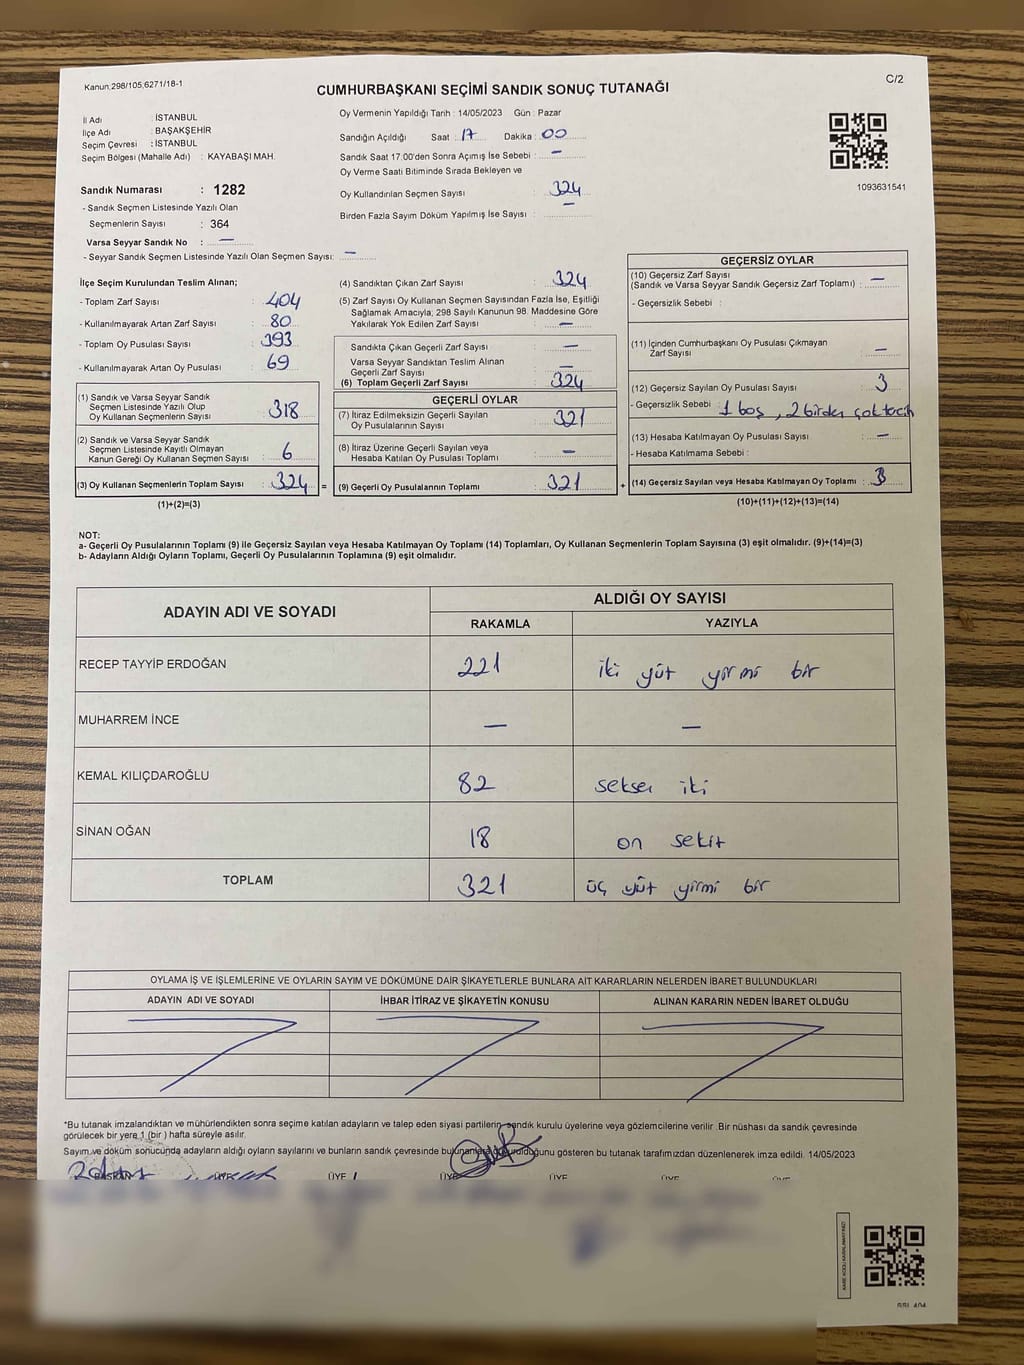 Kanun;298/105,6271/18-1
C/2
CUMHURBAŞKANI SEÇİMİ SANDIK SONUÇ TUTANAĞI
İl Adı : İSTANBUL
İlçe Adı : BAŞAKŞEHİR
Seçim Çevresi : İSTANBUL
Seçim Bölgesi (Mahalle Adı) : KAYABAŞI MAH.
Sandık Numarası : 1282
- Sandık Seçmen Listesinde Yazılı Olan
Seçmenlerin Sayısı : 364
Varsa Seyyar Sandık No : —
- Seyyar Sandık Seçmen Listesinde Yazılı Olan Seçmen Sayısı: —
Oy Vermenin Yapıldığı Tarih : 14/05/2023 Gün : Pazar
Sandığın Açıldığı Saat : 17 Dakika : 00
Sandık Saat 17:00'den Sonra Açımış İse Sebebi : —
Oy Verme Saati Bitiminde Sırada Bekleyen ve
Oy Kullandırılan Seçmen Sayısı : 324
Birden Fazla Sayım Döküm Yapılmış İse Sayısı : —
1093631541
İlçe Seçim Kurulundan Teslim Alınan;
- Toplam Zarf Sayısı : 404
- Kullanılmayarak Artan Zarf Sayısı : 80
- Toplam Oy Pusulası Sayısı : 393
- Kullanılmayarak Artan Oy Pusulası : 69
(1) Sandık ve Varsa Seyyar Sandık
Seçmen Listesinde Yazılı Olup
Oy Kullanan Seçmenlerin Sayısı : 318
(2) Sandık ve Varsa Seyyar Sandık
Seçmen Listesinde Kayıtlı Olmayan
Kanun Gereği Oy Kullanan Seçmen Sayısı : 6
(3) Oy Kullanan Seçmenlerin Toplam Sayısı : 324 =
(1)+(2)=(3)
(4) Sandıktan Çıkan Zarf Sayısı : 324
(5) Zarf Sayısı Oy Kullanan Seçmen Sayısından Fazla İse, Eşitliği
Sağlamak Amacıyla; 298 Sayılı Kanunun 98. Maddesine Göre
Yakılarak Yok Edilen Zarf Sayısı : —
Sandıkta Çıkan Geçerli Zarf Sayısı : —
Varsa Seyyar Sandıktan Teslim Alınan
Geçerli Zarf Sayısı : —
(6) Toplam Geçerli Zarf Sayısı : 324
GEÇERLİ OYLAR
(7) İtiraz Edilmeksizin Geçerli Sayılan
Oy Pusulalarının Sayısı : 321
(8) İtiraz Üzerine Geçerli Sayılan veya
Hesaba Katılan Oy Pusulası Toplamı : —
(9) Geçerli Oy Pusulalarının Toplamı : 321 +
GEÇERSİZ OYLAR
(10) Geçersiz Zarf Sayısı
(Sandık ve Varsa Seyyar Sandık Geçersiz Zarf Toplamı) : —
- Geçersizlik Sebebi :
(11) İçinden Cumhurbaşkanı Oy Pusulası Çıkmayan
Zarf Sayısı : —
(12) Geçersiz Sayılan Oy Pusulası Sayısı : 3
- Geçersizlik Sebebi : 1 boş, 2 birden çok tercih
(13) Hesaba Katılmayan Oy Pusulası Sayısı : —
- Hesaba Katılmama Sebebi :
(14) Geçersiz Sayılan veya Hesaba Katılmayan Oy Toplamı : 3
(10)+(11)+(12)+(13)=(14)
NOT:
a- Geçerli Oy Pusulalarının Toplamı (9) ile Geçersiz Sayılan veya Hesaba Katılmayan Oy Toplamı (14) Toplamları, Oy Kullanan Seçmenlerin Toplam Sayısına (3) eşit olmalıdır. (9)+(14)=(3)
b- Adayların Aldığı Oyların Toplamı, Geçerli Oy Pusulalarının Toplamına (9) eşit olmalıdır.
ADAYIN ADI VE SOYADI ALDIĞI OY SAYISI
RAKAMLA YAZIYLA
RECEP TAYYİP ERDOĞAN 221 iki yüz yirmi bir
MUHARREM İNCE — —
KEMAL KILIÇDAROĞLU 82 seksen iki
SİNAN OĞAN 18 on sekiz
TOPLAM 321 üç yüz yirmi bir
OYLAMA İŞ VE İŞLEMLERİNE VE OYLARIN SAYIM VE DÖKÜMÜNE DAİR ŞİKAYETLERLE BUNLARA AİT KARARLARIN NELERDEN İBARET BULUNDUKLARI
ADAYIN ADI VE SOYADI İHBAR İTİRAZ VE ŞİKAYETİN KONUSU ALINAN KARARIN NEDEN İBARET OLDUĞU
*Bu tutanak imzalandıktan ve mühürlendikten sonra seçime katılan adayların ve talep eden siyasi partilerin sandık kurulu üyelerine veya gözlemcilerine verilir. Bir nüshası da sandık çevresinde
görülecek bir yere 1 (bir ) hafta süreyle asılır.
Sayım ve döküm sonucunda adayların aldığı oyların sayılarını ve bunların sandık çevresinde bulunanlara duyurulduğunu gösteren bu tutanak tarafımızdan düzenlenerek imza edildi. 14/05/2023
BAŞKAN ÜYE ÜYE ÜYE ÜYE ÜYE ÜYE